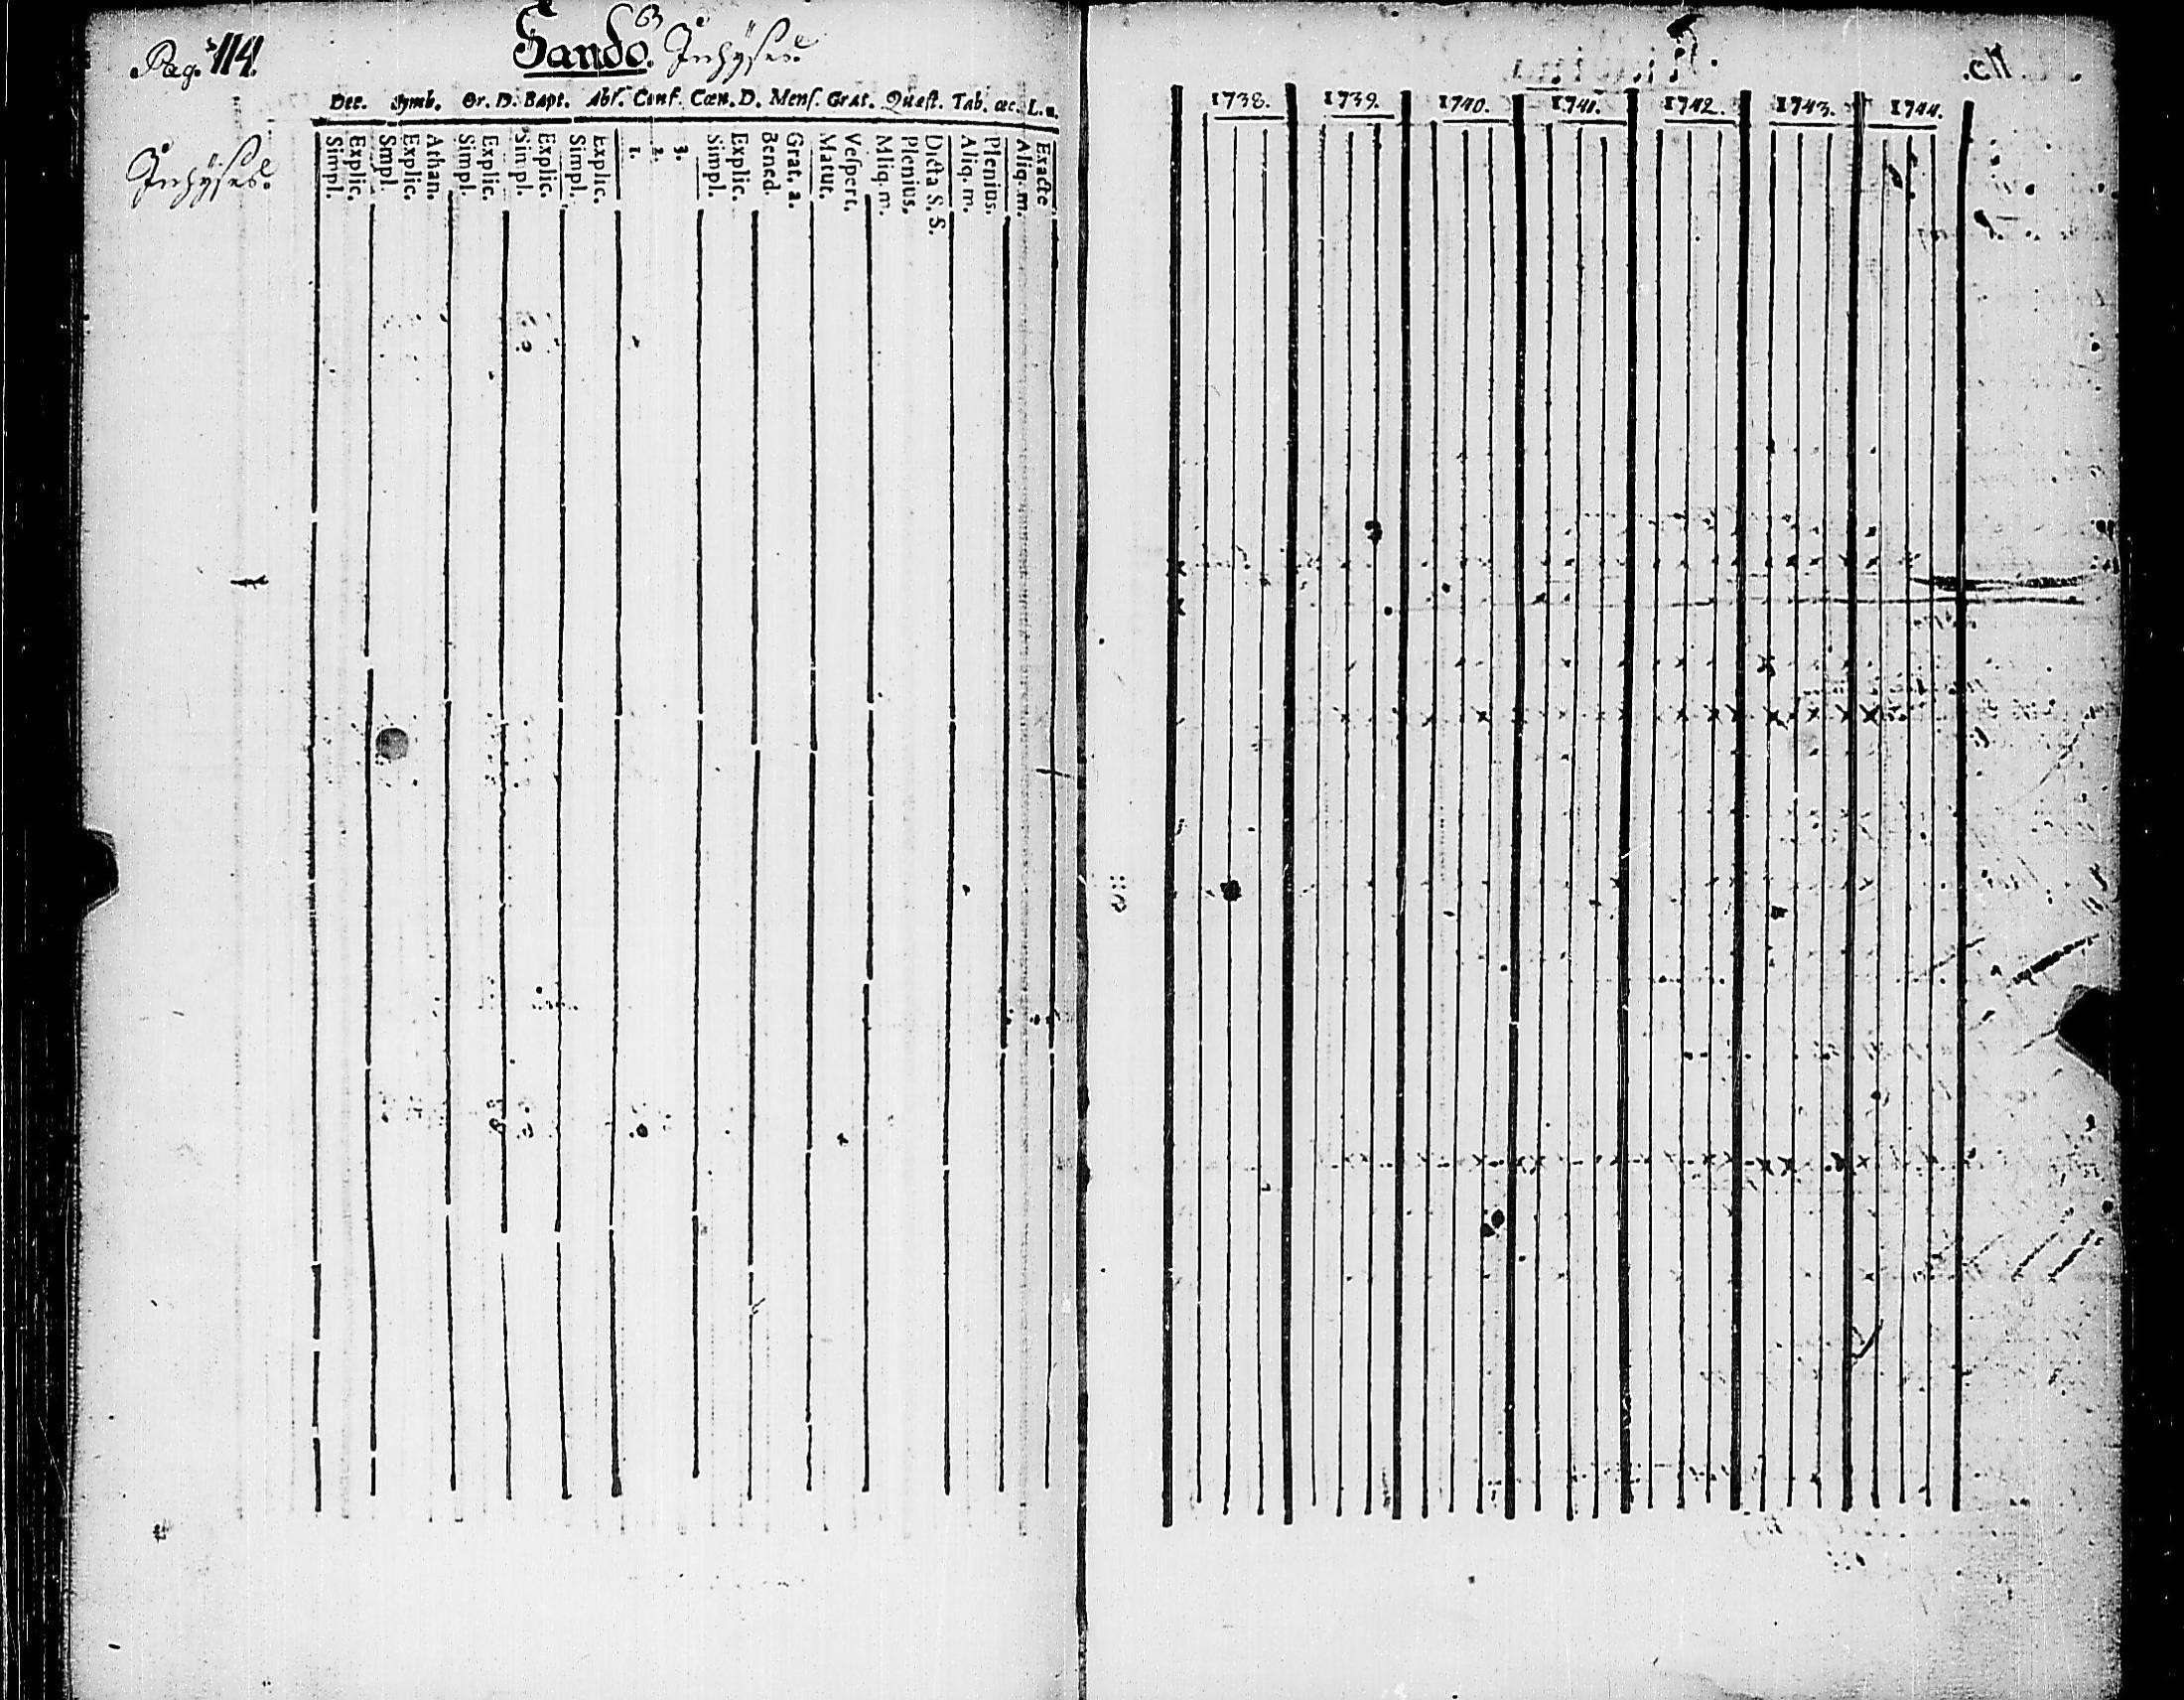 Pag. 114.
63
Sando. Inhyses.
Dec. Symb. Or. D. Bapt. Abs. Conf. Cœn. D. Mens. Grat. Quæst. Tab. œc. L.
Inhyses.
Simpl.
Explic.
Smpl.
Explic.
Athan.
Simpl.
Explic.
Simpl.
Explic.
Simpl.
Explic.
1.
2.
3.
Simpl.
Explic.
Bened.
Grat. a.
Matut.
Vespert.
Aliq. m.
Plenius.
Dicta S. S.
Aliq. m.
Plenius.
Aliq. m.
Exacte
1738. 1739. 1740. 1741. 1742. 1743. 1744.